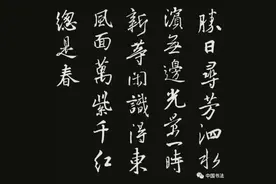 勝日尋芳泗水
濱無邊光景一時
新等閑識得東
風面萬紫千紅
總是春
中国书法